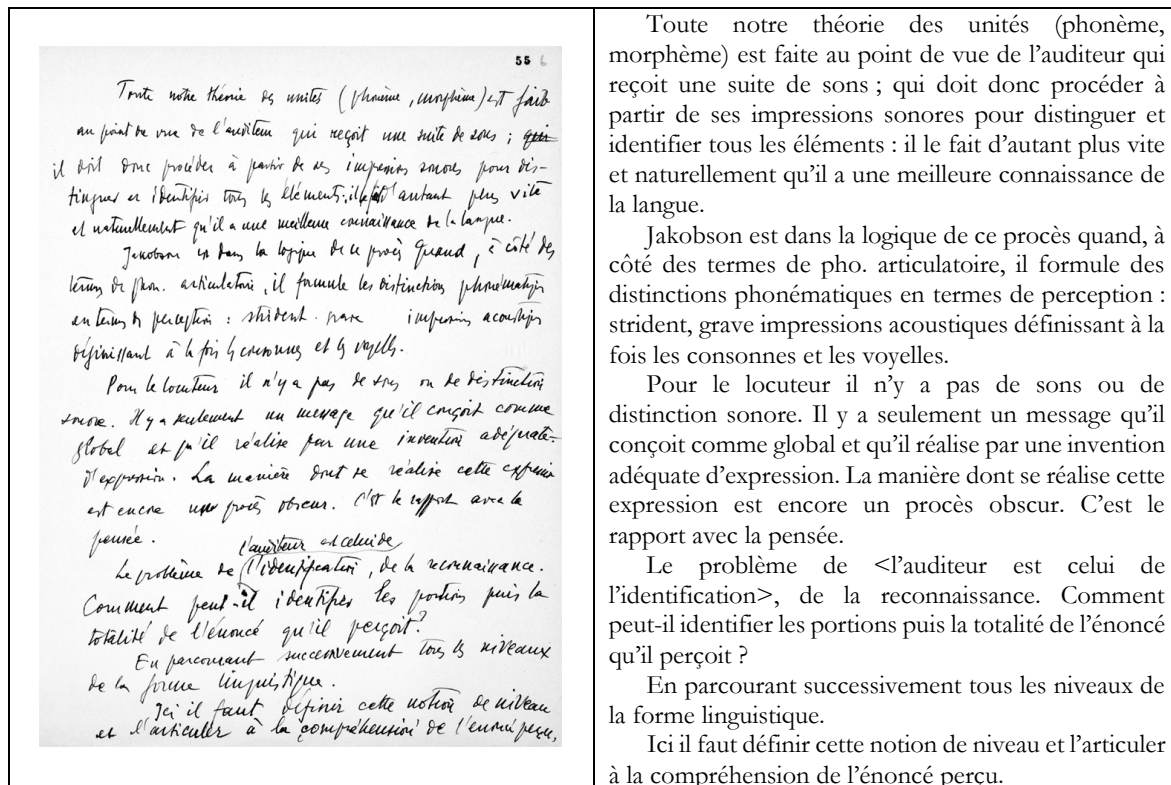 55 6
Toute notre théorie des unités (phonème, morphème) est faite
au point de vue de l'auditeur qui reçoit une suite de sons ; qui
il doit donc procéder à partir de ses impressions sonores pour dis-
tinguer et identifier tous les éléments : il le fait d'autant plus vite
et naturellement qu'il a une meilleure connaissance de la langue.
Jakobson est dans la logique de ce procès quand, à côté des
termes de phon. articulatoire, il formule les distinctions phonématiques
en termes de perception : strident. grave impressions acoustiques
définissant à la fois les consonnes et les voyelles.
Pour le locuteur il n'y a pas de sons ou de distinction
sonore. Il y a seulement un message qu'il conçoit comme
global et qu'il réalise par une invention adéquate
d'expression. La manière dont se réalise cette expression
est encore un procès obscur. C'est le rapport avec la
pensée.
l'auditeur est celui de
Le problème de l'identification, de la reconnaissance.
Comment peut-il identifier les portions puis la
totalité de l'énoncé qu'il perçoit ?
En parcourant successivement tous les niveaux
de la forme linguistique.
Ici il faut définir cette notion de niveau
et l'articuler à la compréhension de l'énoncé perçu.
Toute notre théorie des unités (phonème,
morphème) est faite au point de vue de l'auditeur qui
reçoit une suite de sons ; qui doit donc procéder à
partir de ses impressions sonores pour distinguer et
identifier tous les éléments : il le fait d'autant plus vite
et naturellement qu'il a une meilleure connaissance de
la langue.
Jakobson est dans la logique de ce procès quand, à
côté des termes de pho. articulatoire, il formule des
distinctions phonématiques en termes de perception :
strident, grave impressions acoustiques définissant à la
fois les consonnes et les voyelles.
Pour le locuteur il n'y a pas de sons ou de
distinction sonore. Il y a seulement un message qu'il
conçoit comme global et qu'il réalise par une invention
adéquate d'expression. La manière dont se réalise cette
expression est encore un procès obscur. C'est le
rapport avec la pensée.
Le problème de <l'auditeur est celui de
l'identification>, de la reconnaissance. Comment
peut-il identifier les portions puis la totalité de l'énoncé
qu'il perçoit ?
En parcourant successivement tous les niveaux de
la forme linguistique.
Ici il faut définir cette notion de niveau et l'articuler
à la compréhension de l'énoncé perçu.